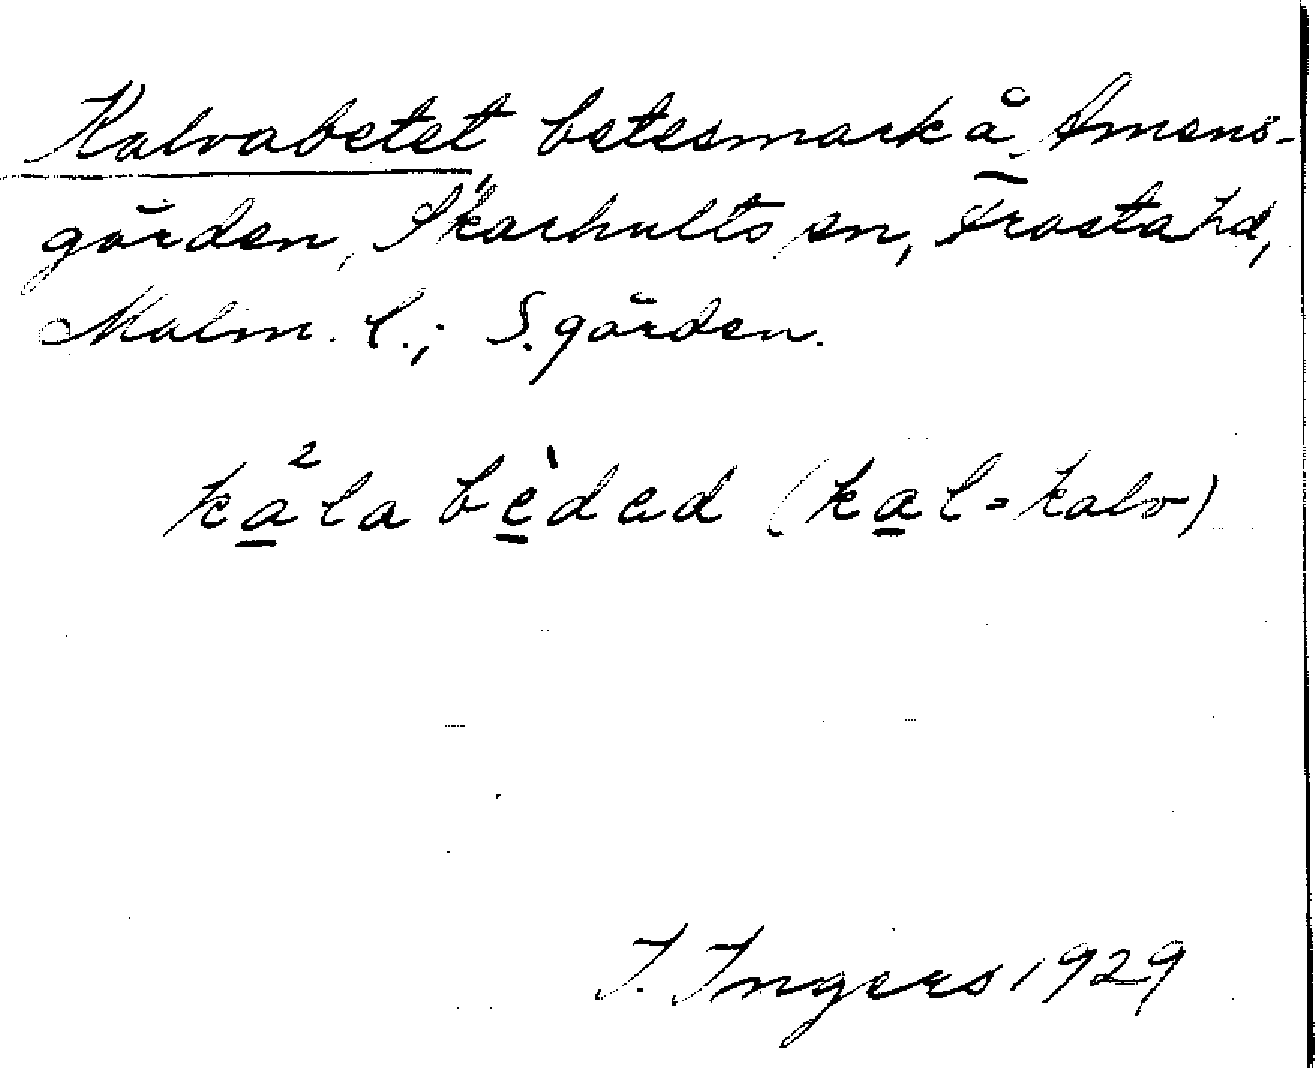 Kalvabetet, betesmark å Smens-
gården, Skarhults sn, Frosta hd,
Malm. l.; S. gården.
kа̲²la bè̲ded (ka̲l = kalv)
I. Ingers 1929